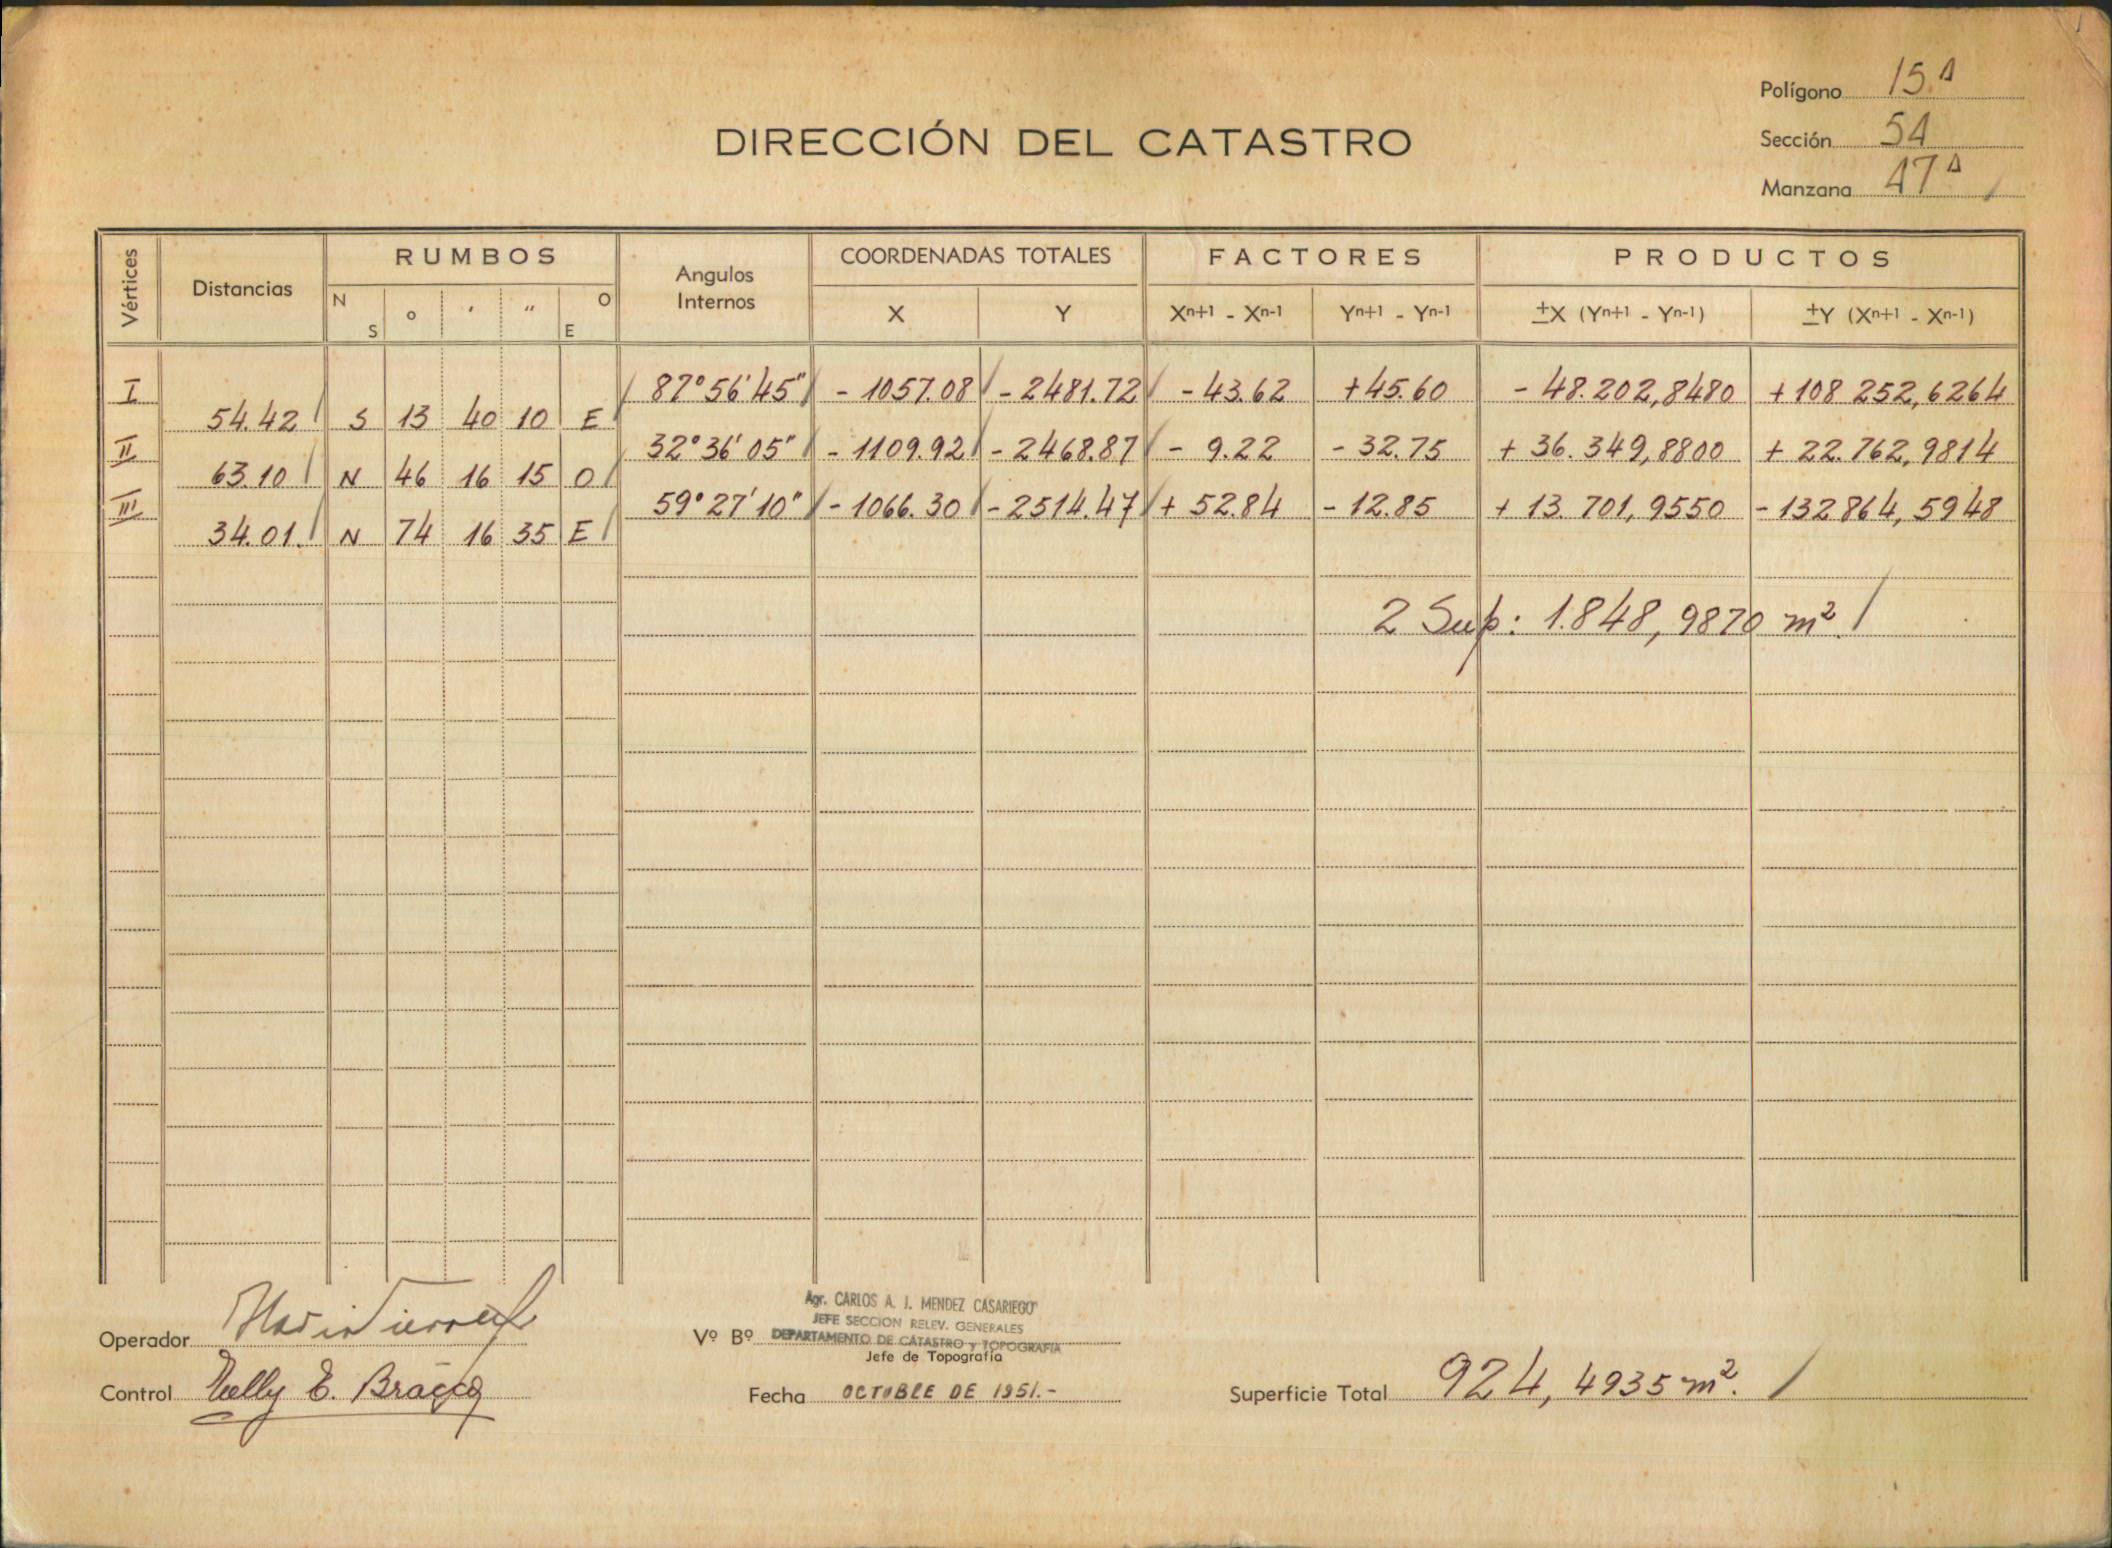 Polígono 15ᴬ
DIRECCIÓN DEL CATASTRO
Sección 54
Manzana 47ᴬ
Vértices Distancias RUMBOS Angulos Internos COORDENADAS TOTALES FACTORES PRODUCTOS
N S ° ' " O E X Y Xⁿ⁺¹ - Xⁿ⁻¹ Yⁿ⁺¹ - Yⁿ⁻¹ ±X (Yⁿ⁺¹ - Yⁿ⁻¹) ±Y (Xⁿ⁺¹ - Xⁿ⁻¹)
I 87° 56' 45" - 1057.08 - 2481.72 - 43.62 + 45.60 - 48.202,8480 + 108 252,6264
54.42 S 13 40 10 E
II 32° 36' 05" - 1109.92 - 2468.87 - 9.22 - 32.75 + 36.349,8800 + 22.762,9814
63.10 N 46 16 15 O
III 59° 27' 10" - 1066.30 - 2514.47 + 52.84 - 12.85 + 13.701,9550 - 132864,5948
34.01. N 74 16 35 E
2 Sup: 1.848,9870 m².
Agr. CARLOS A. J. MENDEZ CASARIEGO
JEFE SECCION RELEV. GENERALES
Operador Vº Bº DEPARTAMENTO DE CATASTRO y TOPOGRAFIA
Jefe de Topografía
Control Nelly E. Fecha OCTUBRE DE 1951.- Superficie Total 924,4935 m².